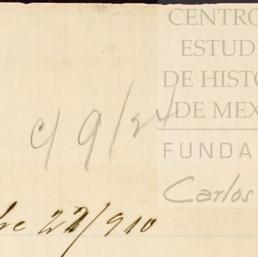 CENTRO
ESTUDI
DE HISTO
DE MEX
FUNDA
Carlos
c/ 9/24
bre 22/910